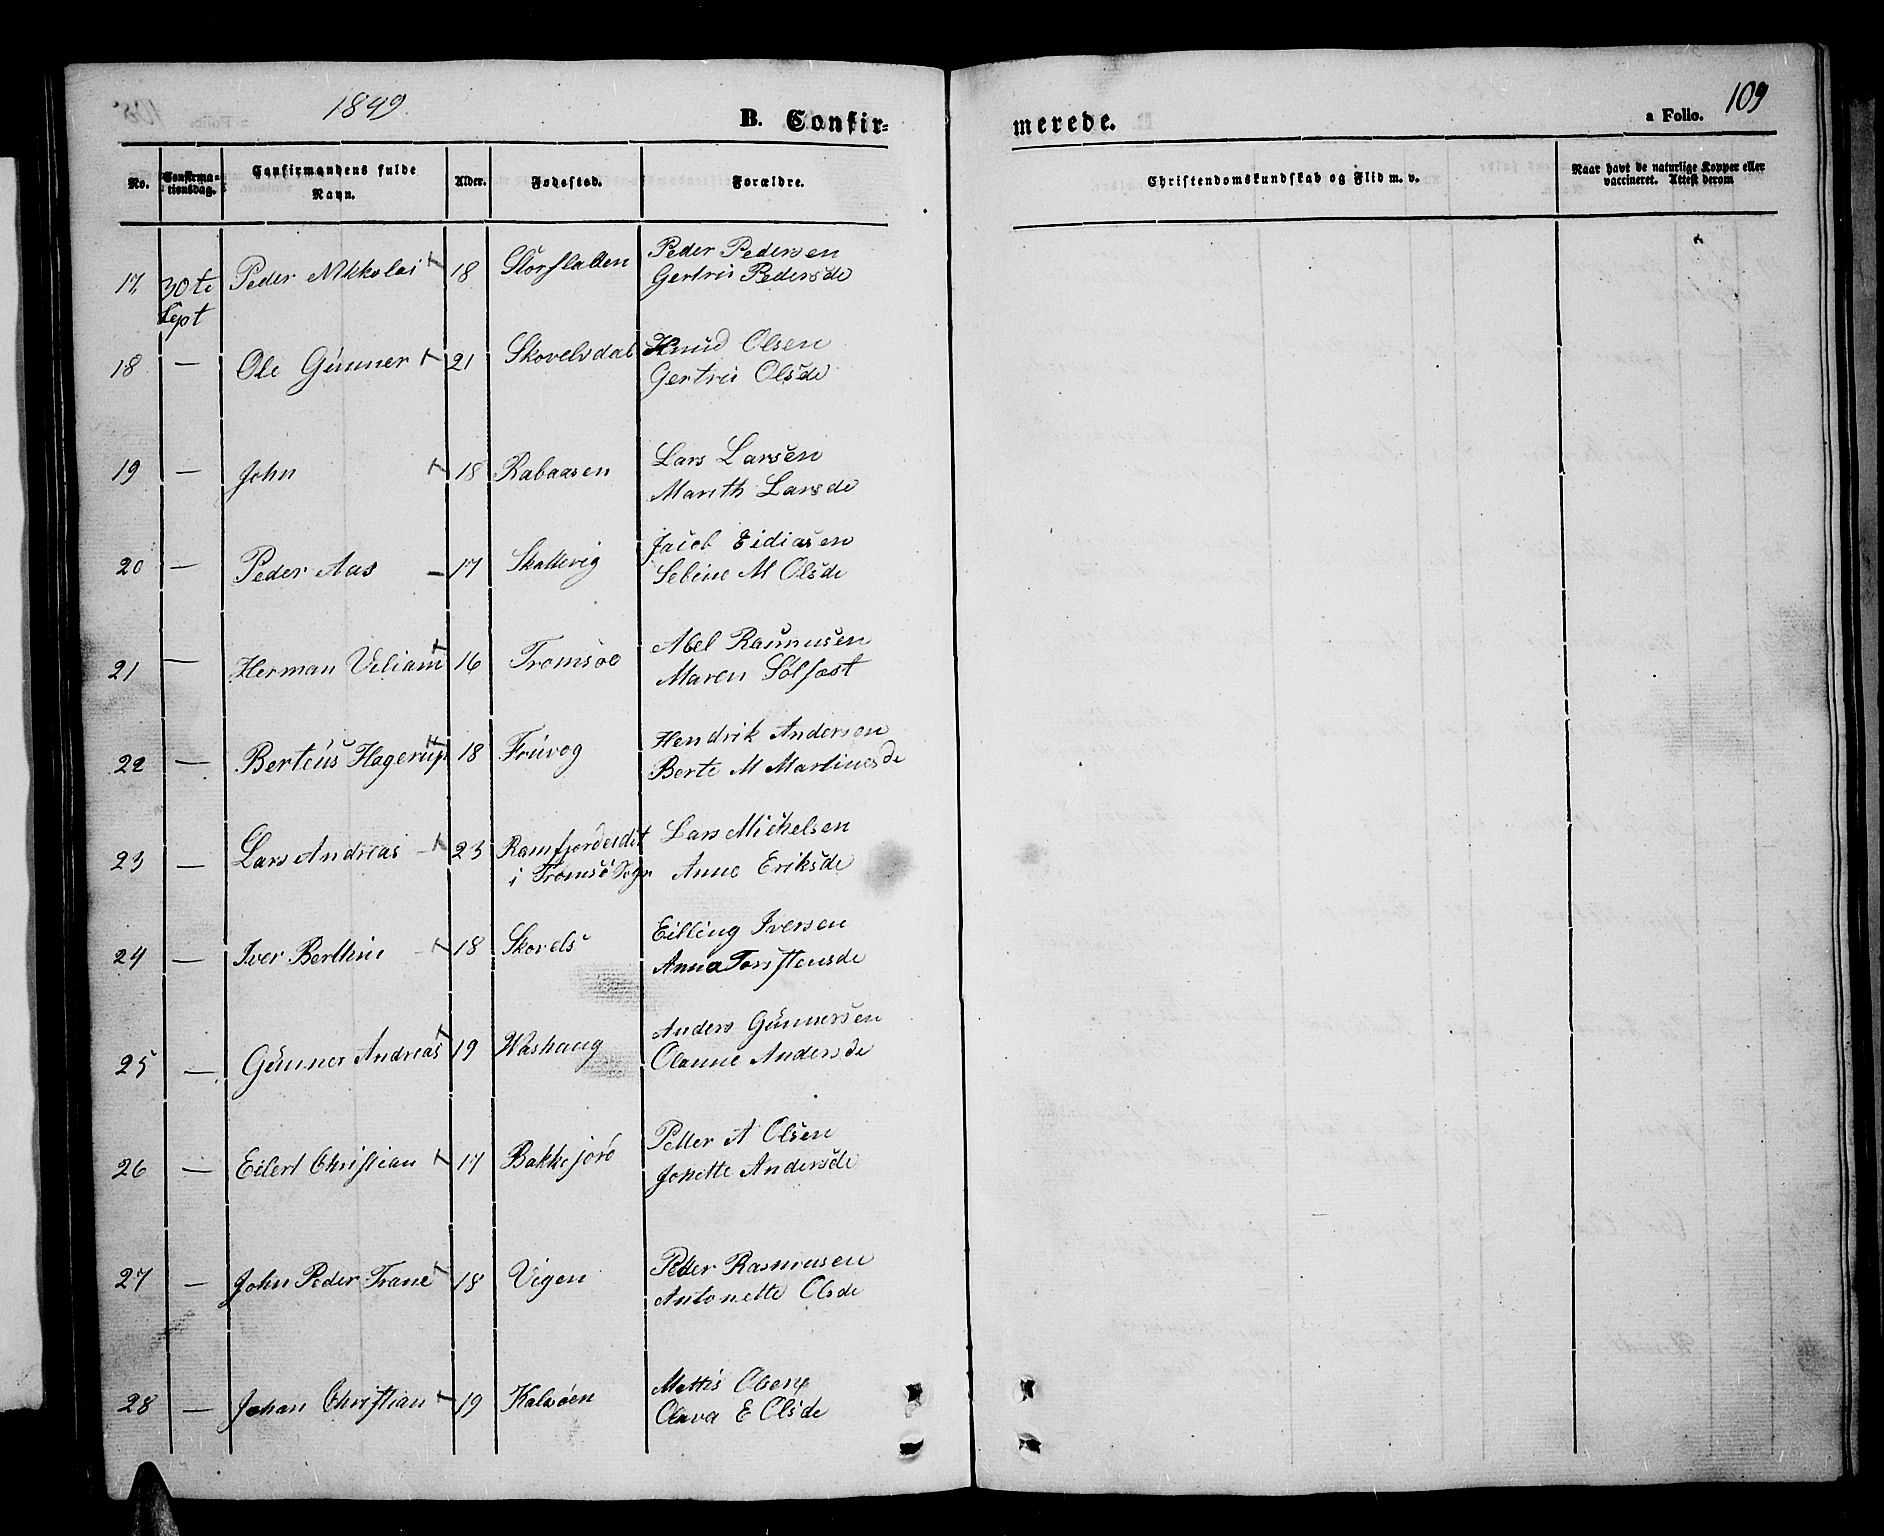 1849.
B. Confirmerede.
a Folio. 109
No. Confirmationsdag. Confirmandens fulde Navn. Alder. Fødested. Forældre. Christendomskundskab og Flid m. v. Naar havt de naturlige Kopper eller vaccineret. Attest derom
17, 30te Sept Peder Nikkolai 18 Storslatten Peder Pedersen
Gertru Pedersde
18 — Ole Gunner 21 Skovelvdal Knud Olsen
Gertru Olsde
19 — John 18 Rabaasen Lars Larsen
Marith Larsde
20 — Peder Aas — 17 Skattevig Jacob Eidiasen
Sebine M Olsde
21 — Herman Viliam 16 Tromsøe Abel Rasmusen
Maren Solfast
22 — Berteus Hagerup 18 Fruvog Hendrik Andersen
Berte M Martinesde
23 — Lars Andreas 23 Ramfjordeidet Lars Michelsen
i Tromsö Sogn Anne Eriksde
24 — Iver Berthin 18 Skovels Eilling Iversen
Anna Torstensde
25 — Gunner Andreas 19 Washaug Anders Gunnersen
Olanne Andersde
26 — Eilert Christian 17 Bakkejord Petter A Olsen
Jonette Andersde
27 — John Peder Trane 18 Vigen Peder Rasmusen
Antonette Olsde
28 — Johan Christian 19 Kalsøen Mattis Olsen
Olava E Olsde